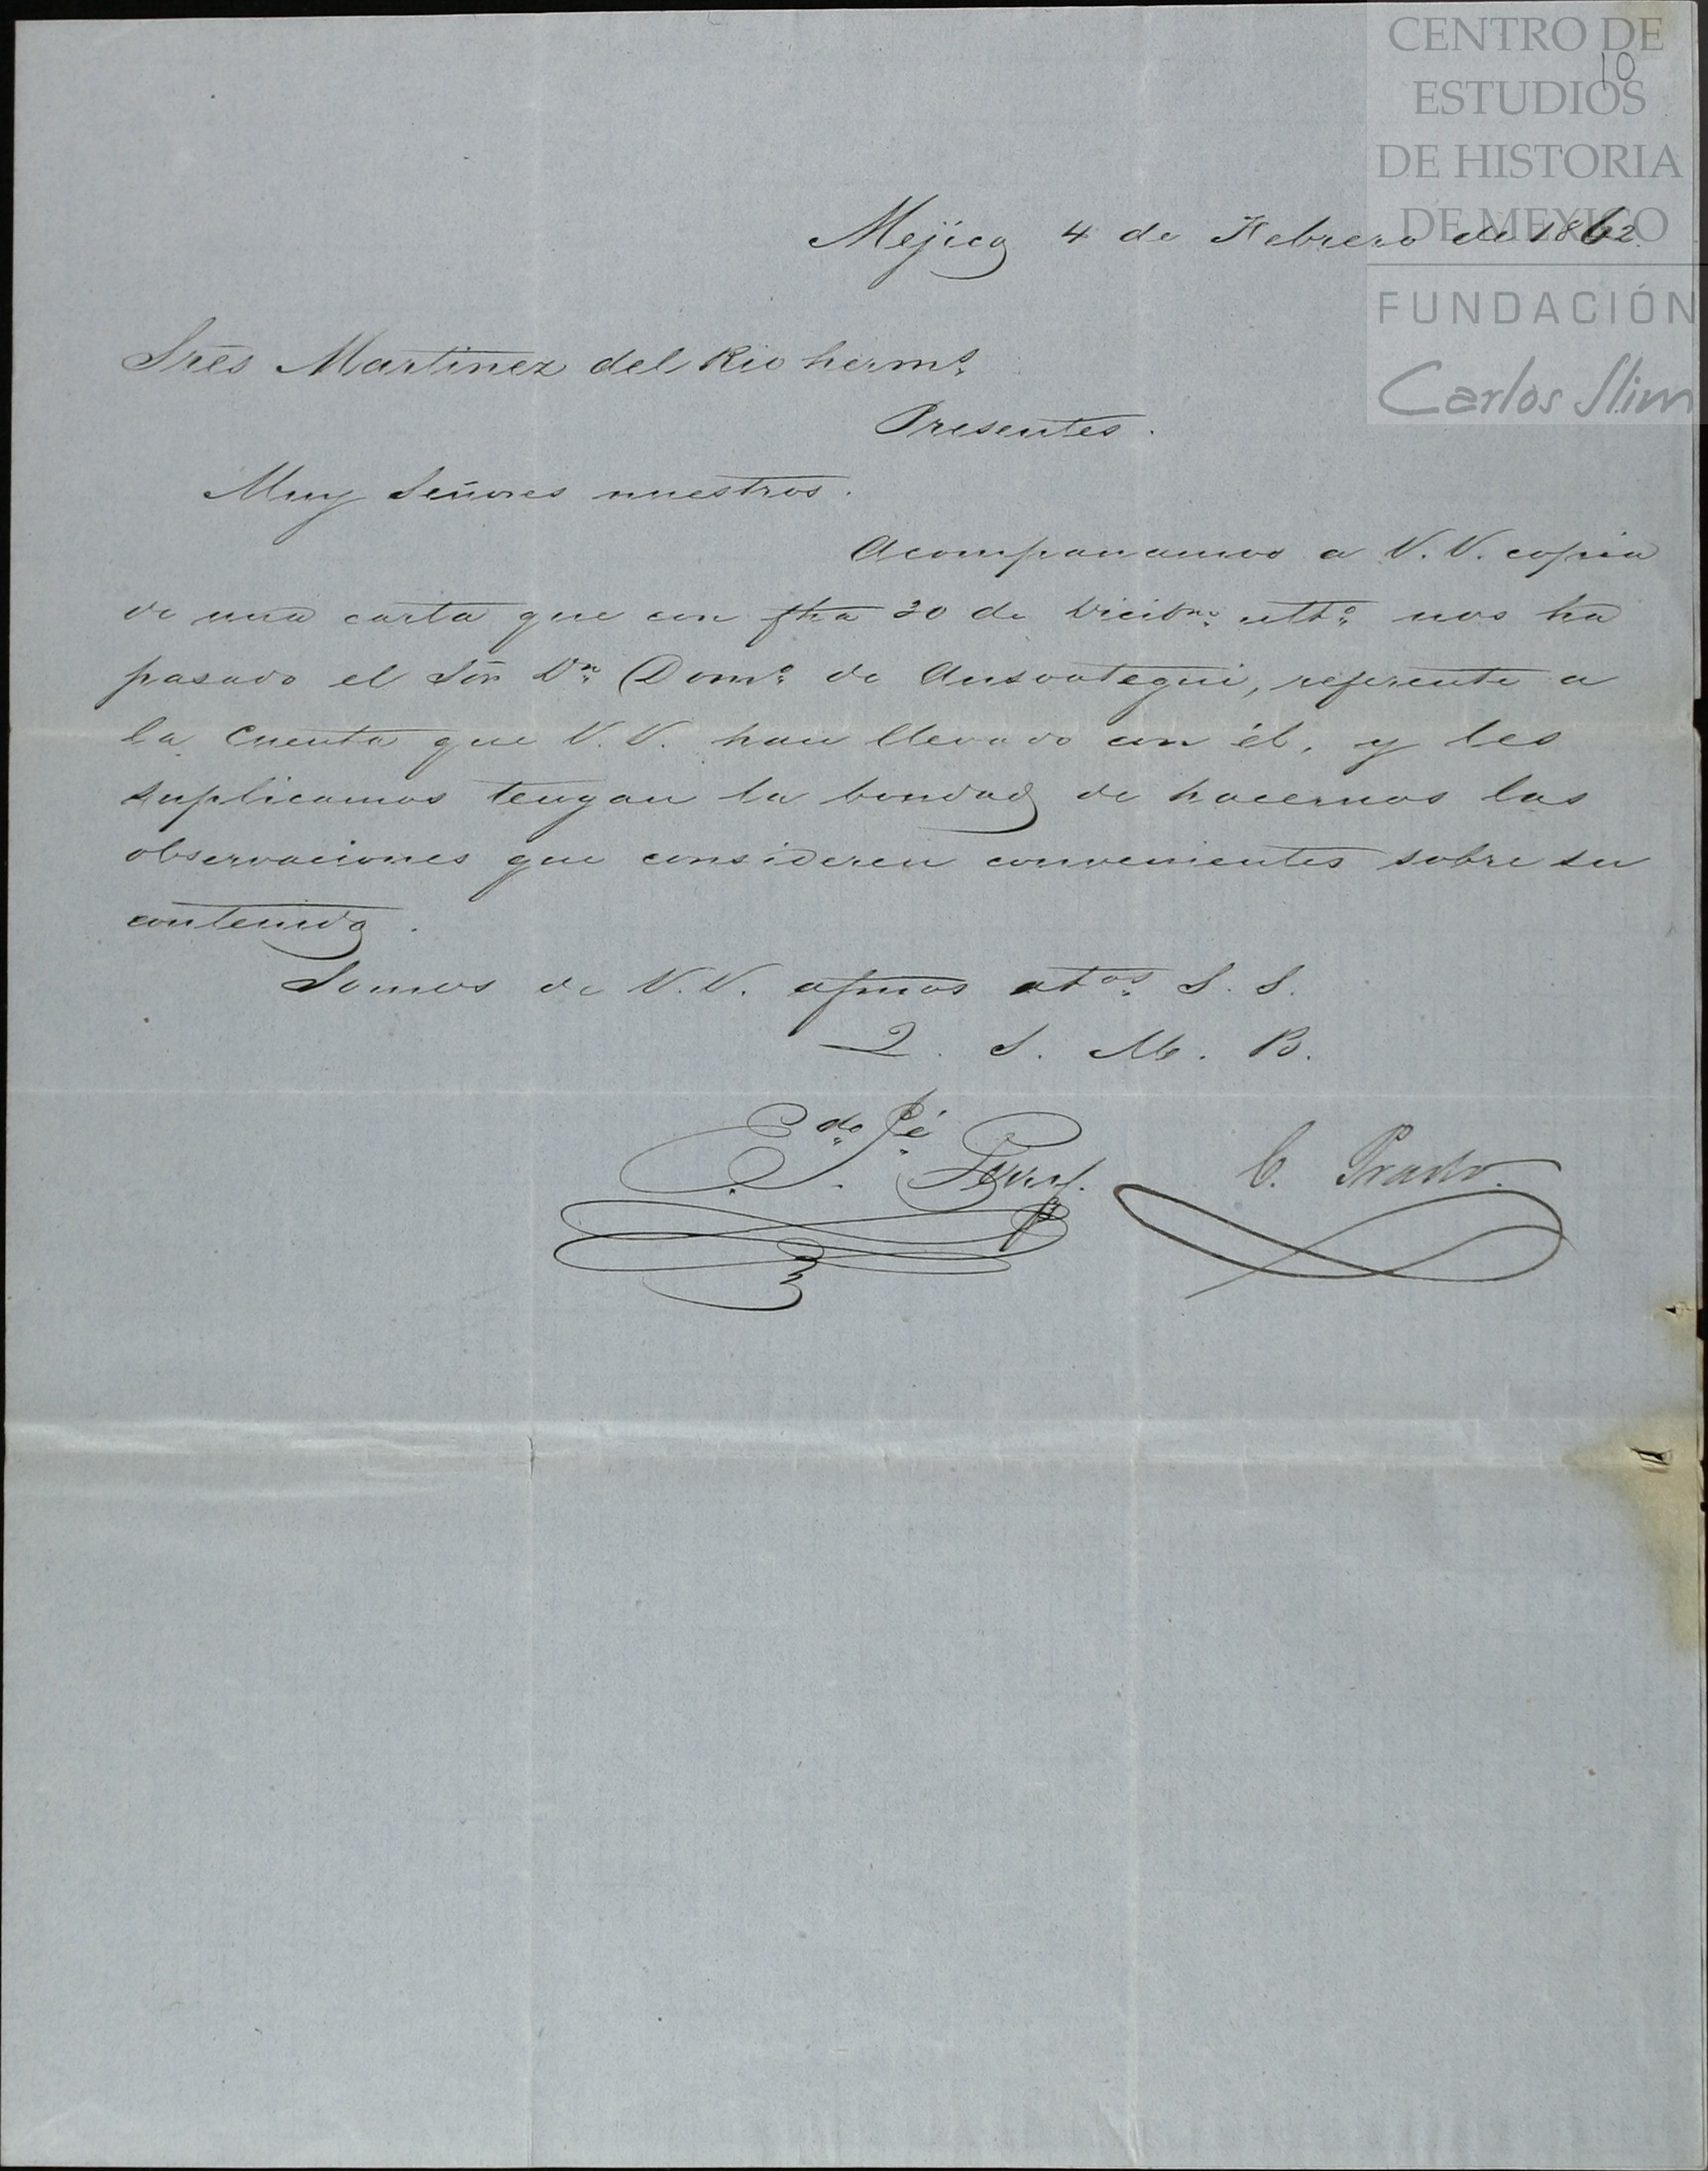 CENTRO DE
10
ESTUDIOS
DE HISTORIA
DE MEXICO
FUNDACIÓN
Carlos Slim
Mejico 4 de Febrero de 1862.
Sres Martinez del Rio hermo.
Presentes.
Muy Señores nuestros.
Acompanamos a V.V. copia
de una carta que con fha 30 de Dicibre. ulto. nos ha
pasado el Sor. Dn. Domo. de Ansoategui, referente a
la Cuenta que V.V. han llevado con él, y les
suplicamos tengan la bondad de hacernos las
observaciones que consideren convenientes sobre su
contenido.
Somos de V.V. afmos atos. S. S.
Q. S. M. B.
Edo. Jé
C. Prado.